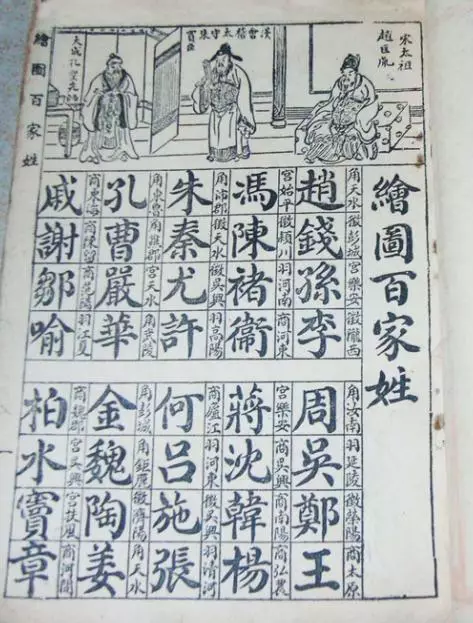 繪圖百家姓
宋太祖
趙匡胤
漢會稽太守朱
買臣
角天水 徵彭城 宮樂安 徵隴西
趙錢孫李
宮始平 徵潁川 羽河南 商河東
馮陳褚衞
角沛郡 徵天水 徵吳興 羽高陽
朱秦尤許
角東魯 角譙郡 宮天水 角武陵
孔曹嚴華
商東海 商陳留 商范陽 羽江夏
戚謝鄒喻
角汝南 羽延陵 徵滎陽 商太原
周吳鄭王
宮樂安 商吳興 商南陽 商弘農
蔣沈韓楊
商廬江 羽河東 徵吳興 羽清河
何吕施張
角彭城 角鉅鹿 徵濟陽 角天水
金魏陶姜
商魏郡 宮吳興 宮扶風 商河間
柏水竇章
繪圖百家姓